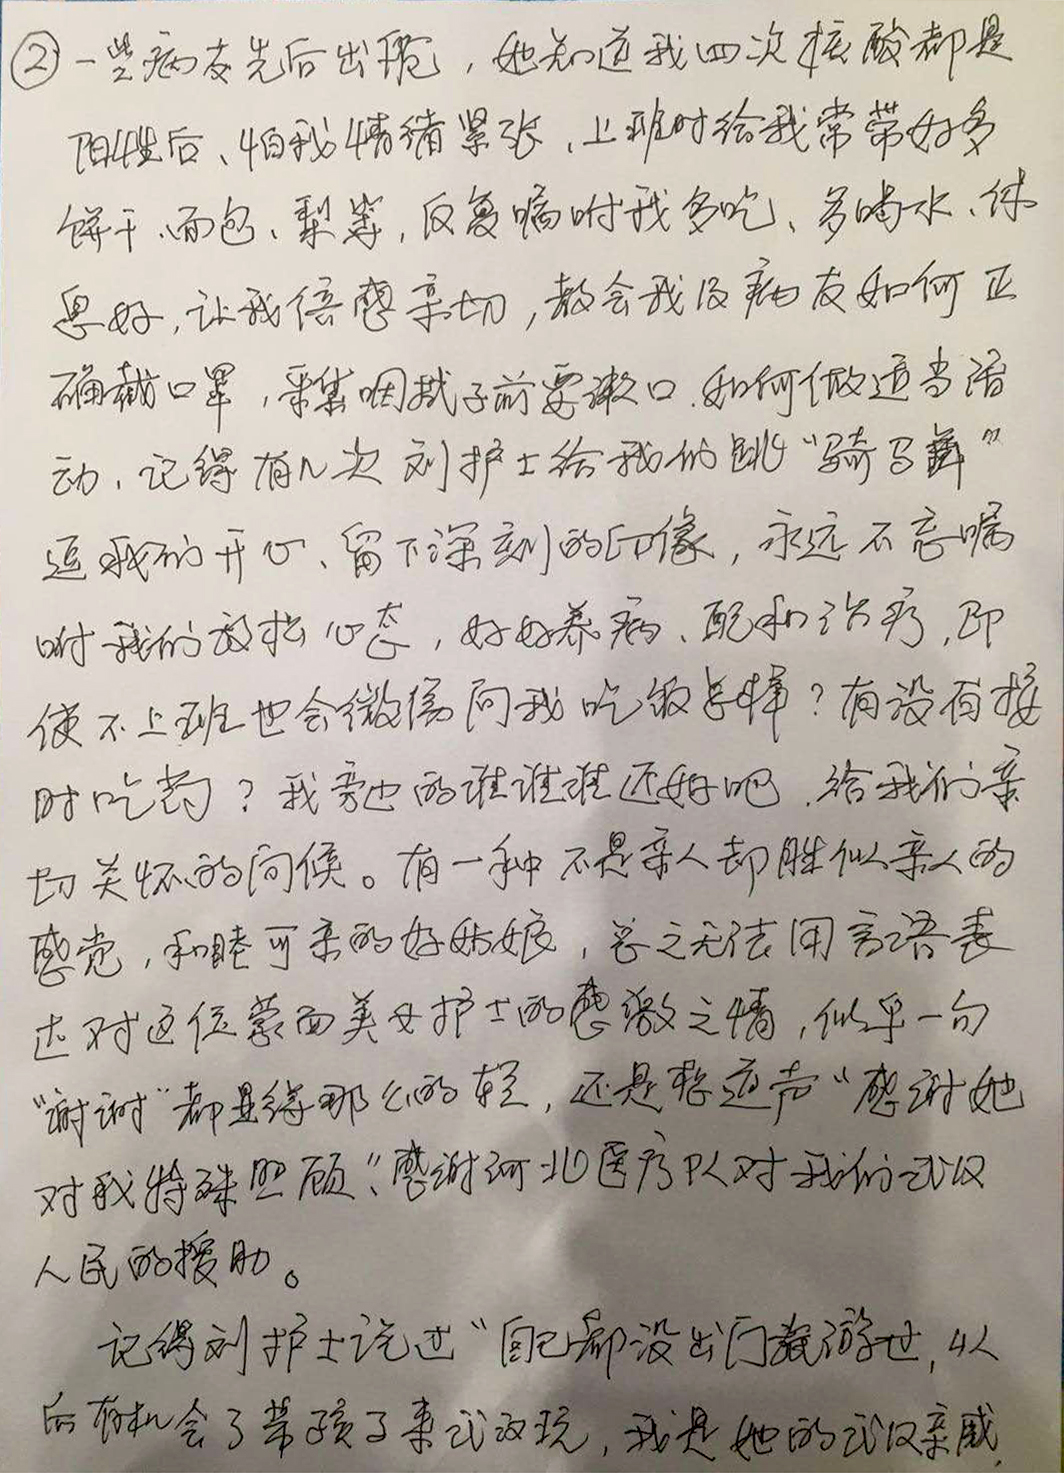 ②一些病友先后出院，她知道我四次核酸都是
阳性后、怕我情绪紧张、上班时给我常带好多
饼干、面包、梨等，反复嘱咐我多吃、多喝水、休
息好，让我倍感亲切，教会我及病友如何正
确戴口罩，采集咽拭子前要漱口、如何做适当活
动、记得有几次刘护士给我们跳“骑马舞”
逗我们开心、留下深刻的印像，永远不忘嘱
咐我们放松心态，好好养病、配和治疗，即
使不上班也会微信问我吃饭怎样？有没有按
时吃药？我旁边的谁谁谁还好吧、给我们亲
切关怀的问候。有一种不是亲人却胜似亲人的
感觉，和睦可亲的好姑娘，总之无法用言语表
达对这位蒙面美女护士的感激之情，似乎一句
“谢谢”都显得那么的轻，还是称道声“感谢她
对我特殊照顾”、感谢河北医疗队对我们武汉
人民的援助。
记得刘护士说过“自己都没出门旅游过，以
后有机会了带孩子来武汉玩，我是她的武汉亲戚，